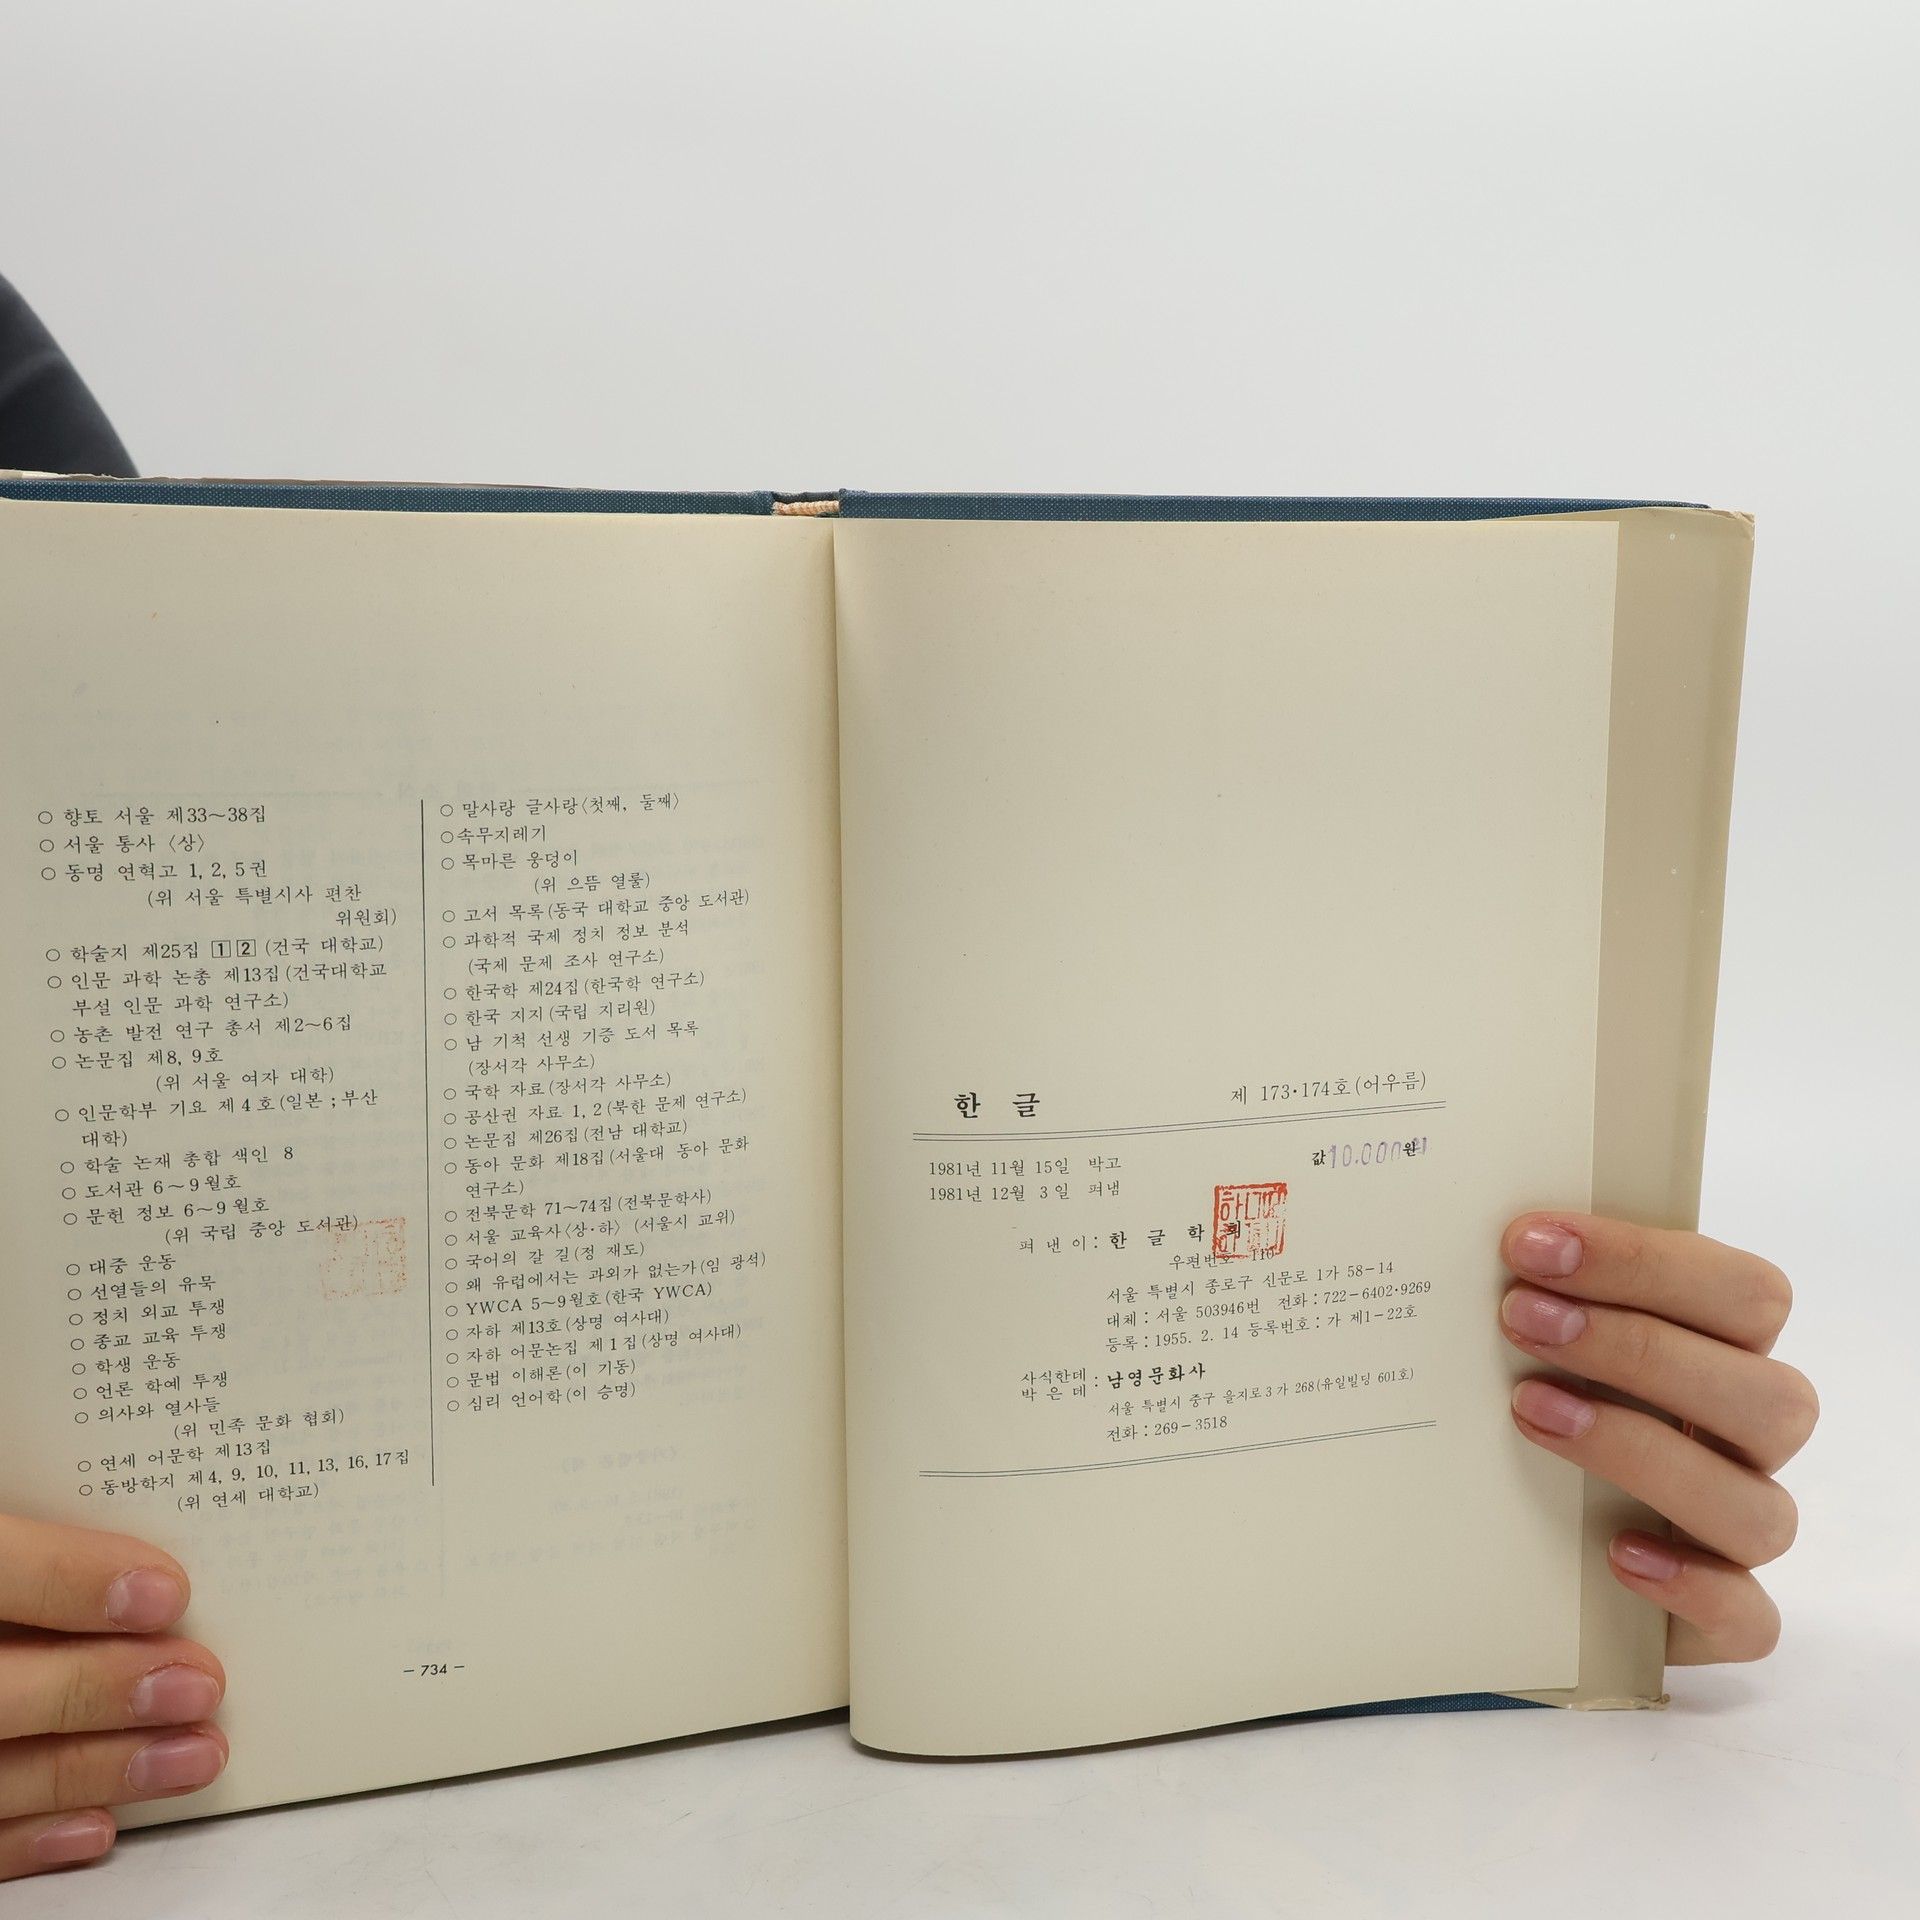 ○ 향토 서울 제33～38집
○ 서울 통사 〈상〉
○ 동명 연혁고 1, 2, 5권
(위 서울 특별시사 편찬
위원회)
○ 학술지 제25집 1 2 (건국 대학교)
○ 인문 과학 논총 제13집(건국대학교
부설 인문 과학 연구소)
○ 농촌 발전 연구 총서 제2～6집
○ 논문집 제8, 9호
(위 서울 여자 대학)
○ 인문학부 기요 제4호(일본 ; 부산
대학)
○ 학술 논재 총합 색인 8
○ 도서관 6～9월호
○ 문헌 정보 6～9월호
(위 국립 중앙 도서관)
○ 대중 운동
○ 선열들의 유묵
○ 정치 외교 투쟁
○ 종교 교육 투쟁
○ 학생 운동
○ 언론 학예 투쟁
○ 의사와 열사들
(위 민족 문화 협회)
○ 연세 어문학 제13집
○ 동방학지 제4, 9, 10, 11, 13, 16, 17집
(위 연세 대학교)
○ 말사랑 글사랑〈첫째, 둘째〉
○ 속무지레기
○ 목마른 웅덩이
(위 으뜸 열룰)
○ 고서 목록(동국 대학교 중앙 도서관)
○ 과학적 국제 정치 정보 분석
(국제 문제 조사 연구소)
○ 한국학 제24집(한국학 연구소)
○ 한국 지지(국립 지리원)
○ 남 기척 선생 기증 도서 목록
(장서각 사무소)
○ 국학 자료(장서각 사무소)
○ 공산권 자료 1, 2(북한 문제 연구소)
○ 논문집 제26집(전남 대학교)
○ 동아 문화 제18집(서울대 동아 문화
연구소)
○ 전북문학 71～74집(전북문학사)
○ 서울 교육사〈상·하〉 (서울시 교위)
○ 국어의 갈 길(정 재도)
○ 왜 유럽에서는 과외가 없는가(임 광석)
○ YWCA 5～9월호(한국 YWCA)
○ 자하 제13호(상명 여사대)
○ 자하 어문논집 제1집(상명 여사대)
○ 문법 이해론(이 기동)
○ 심리 언어학(이 승명)
－ 734 －
한 글 제 173·174호(어우름)
값 10.000원
1981년 11월 15일 박고
1981년 12월 3일 펴냄
펴 낸 이 : 한 글 학 회
우편번호 110
서울 특별시 종로구 신문로 1가 58－14
대체 : 서울 503946번 전화 : 722－6402·9269
등록 : 1955. 2. 14 등록번호 : 가 제1－22호
사식한데
박 은 데 : 남영문화사
서울 특별시 중구 을지로3가 268(유일빌딩 601호)
전화 : 269－3518